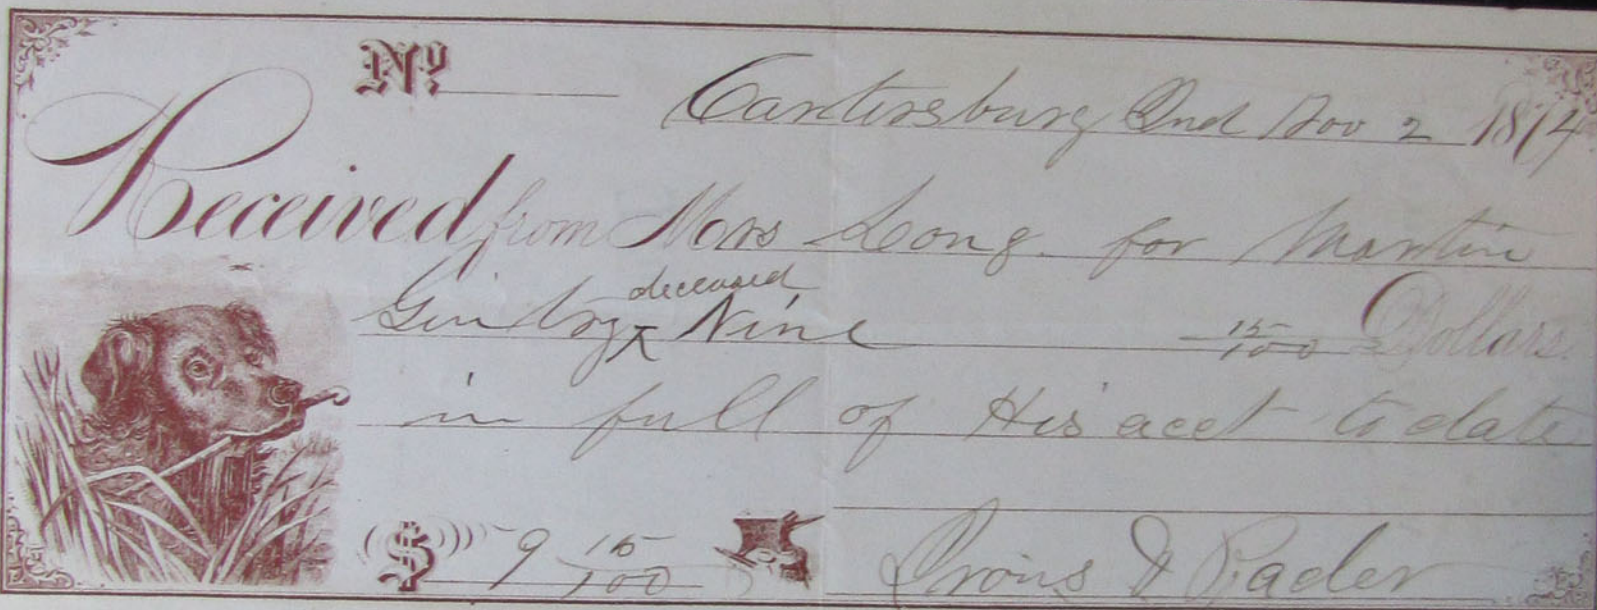 No. Cartersburg Ind Nov 2 1874
Received from Mrs Long for Martin
deceased
Gentry Nine 15/100 Dollars.
in full of His acct to date
$ 9 15/100 Irons & Rader